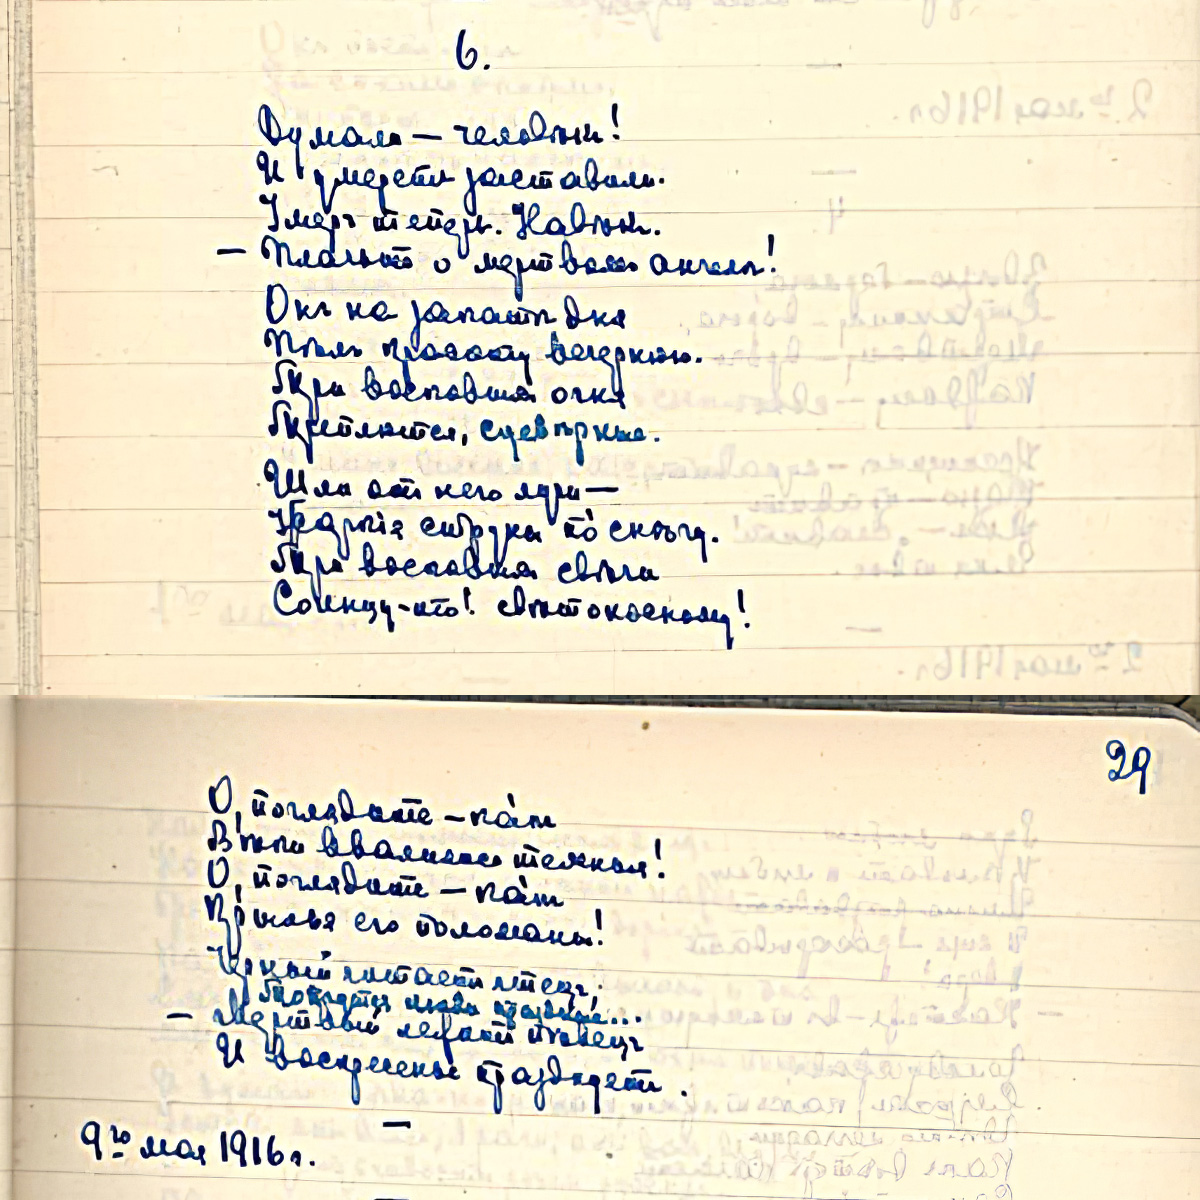 6.
Думали — человѣкъ!
И умереть заставили.
Умеръ теперь. Навѣкъ.
— Плачьте о мертвомъ ангелѣ!
Онъ на закатѣ дня
Пѣлъ красоту вечернюю.
Три восковыхъ огня
Треплются, суевѣрные.
Шли отъ него лучи —
Жаркія струны по́ снѣгу.
Три восковыя свѣчи
Солнцу-то! свѣтоносному!
29
О, поглядите — ка́къ
Вѣки ввалились темныя!
О, поглядите — ка́къ
Крылья его поломаны!
Черный читаетъ чтецъ.
Топчутся люди праздные...
— Мертвый лежитъ пѣвецъ
И воскресенье празднуетъ.
9го мая 1916г.